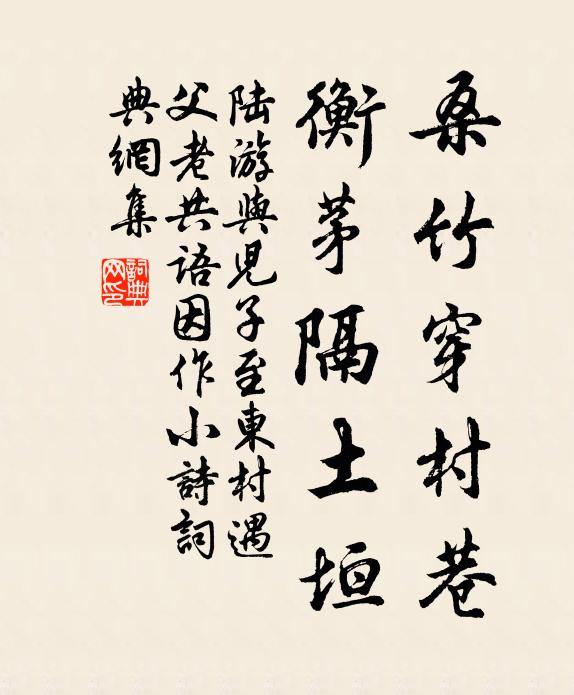 桑竹穿村巷
衡茅隔土垣
陆游與児子至東村遇
父老共語因作小詩詞
典網集
詞典网印